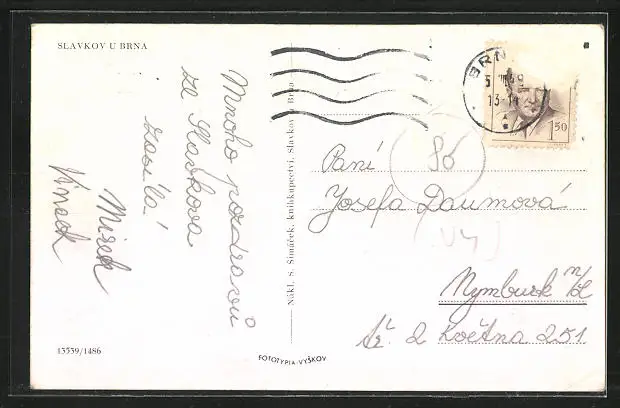 SLAVKOV U BRNA
Mnoho pozdravů
ze Slavkova
zasílá
Mirek
13539/1486
Nákl. S. Šimáček, knihkupectví, Slavkov u Brna
FOTOTYPIA-VYŠKOV
BRN
13-14
1 50
86
Paní
Josefa Daumová
Nymburk n/L
tř. 2 května 251